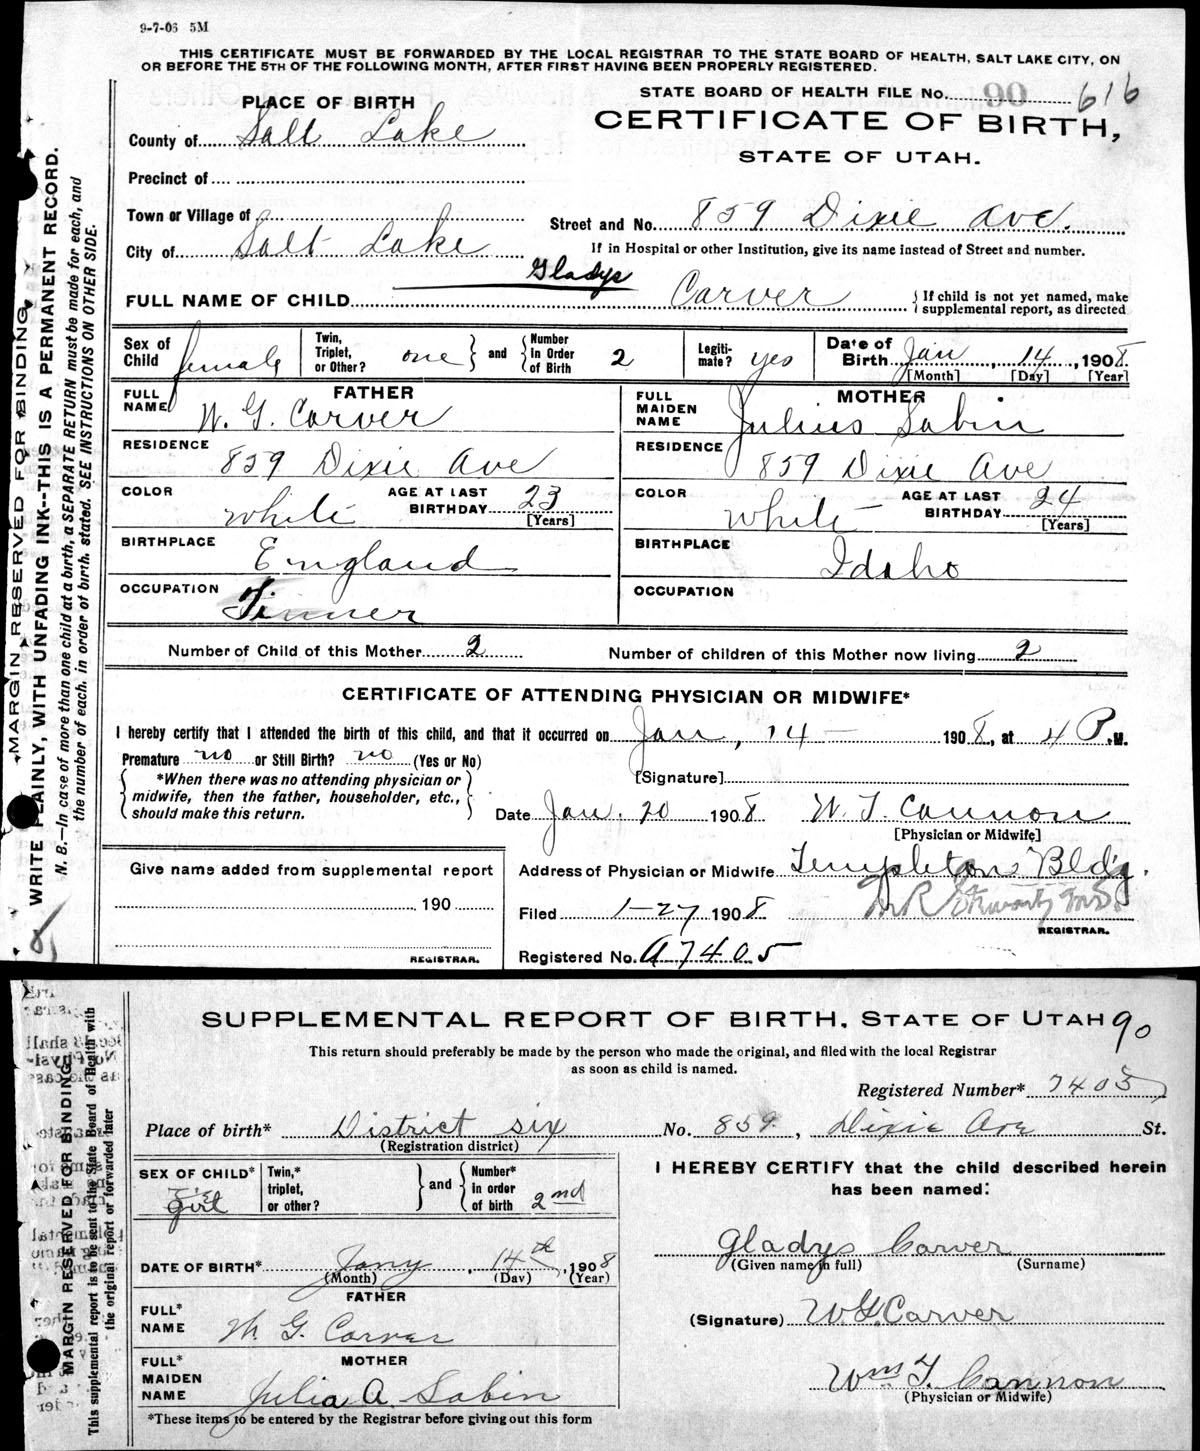 9-7-06 5M
THIS CERTIFICATE MUST BE FORWARDED BY THE LOCAL REGISTRAR TO THE STATE BOARD OF HEALTH, SALT LAKE CITY, ON
OR BEFORE THE 5TH OF THE FOLLOWING MONTH, AFTER FIRST HAVING BEEN PROPERLY REGISTERED.
STATE BOARD OF HEALTH FILE No. 90 616
PLACE OF BIRTH
CERTIFICATE OF BIRTH,
STATE OF UTAH.
County of Salt Lake
Precinct of
Town or Village of
Street and No. 859 Dixie Ave.
City of Salt Lake
If in Hospital or other Institution, give its name instead of Street and number.
Gladys
FULL NAME OF CHILD Carver
{ If child is not yet named, make
supplemental report, as directed
Sex of Child female
Twin, Triplet, or Other? one } and { Number In Order of Birth 2
Legiti-mate? yes
Date of Birth Jan 14, 1908
[Month] [Day] [Year]
FATHER
FULL NAME W. G. Carver
MOTHER
FULL MAIDEN NAME Julius Sabin
RESIDENCE 859 Dixie Ave
RESIDENCE 859 Dixie Ave
COLOR white AGE AT LAST BIRTHDAY 23 [Years]
COLOR white AGE AT LAST BIRTHDAY 24 [Years]
BIRTHPLACE England
BIRTHPLACE Idaho
OCCUPATION Tinner
OCCUPATION
Number of Child of this Mother 2 Number of children of this Mother now living 2
CERTIFICATE OF ATTENDING PHYSICIAN OR MIDWIFE*
I hereby certify that I attended the birth of this child, and that it occurred on Jan, 14 — 1908, at 4 P.M.
Premature no or Still Birth? no (Yes or No)
{ *When there was no attending physician or
midwife, then the father, householder, etc.,
should make this return. }
[Signature]
Date Jan. 20 1908 W. T. Cannon
[Physician or Midwife]
Give name added from supplemental report
190
REGISTRAR.
Address of Physician or Midwife Templeton Bldg.
Filed 1-27 1908
REGISTRAR.
Registered No. A7405
MARGIN RESERVED FOR BINDING.
WRITE PLAINLY, WITH UNFADING INK--THIS IS A PERMANENT RECORD.
N. B.—In case of more than one child at a birth, a SEPARATE RETURN must be made for each, and
the number of each, in order of birth, stated. SEE INSTRUCTIONS ON OTHER SIDE.
SUPPLEMENTAL REPORT OF BIRTH, STATE OF UTAH 90
This return should preferably be made by the person who made the original, and filed with the local Registrar
as soon as child is named.
Registered Number* 7405
Place of birth* District six No. 859, Dixie Ave St.
(Registration district)
SEX OF CHILD* Girl
Twin,* triplet, or other? } and { Number* in order of birth 2nd
I HEREBY CERTIFY that the child described herein
has been named:
DATE OF BIRTH* Jany 14th, 1908
(Month) (Day) (Year)
Gladys Carver
(Given name in full) (Surname)
FATHER
FULL* NAME W. G. Carver
(Signature) W G Carver
MOTHER
FULL* MAIDEN NAME Julia A. Sabin
Wms T. Cannon
(Physician or Midwife)
*These items to be entered by the Registrar before giving out this form
MARGIN RESERVED FOR BINDING.
This supplemental report is to be sent to the State Board of Health with
the original report or forwarded later